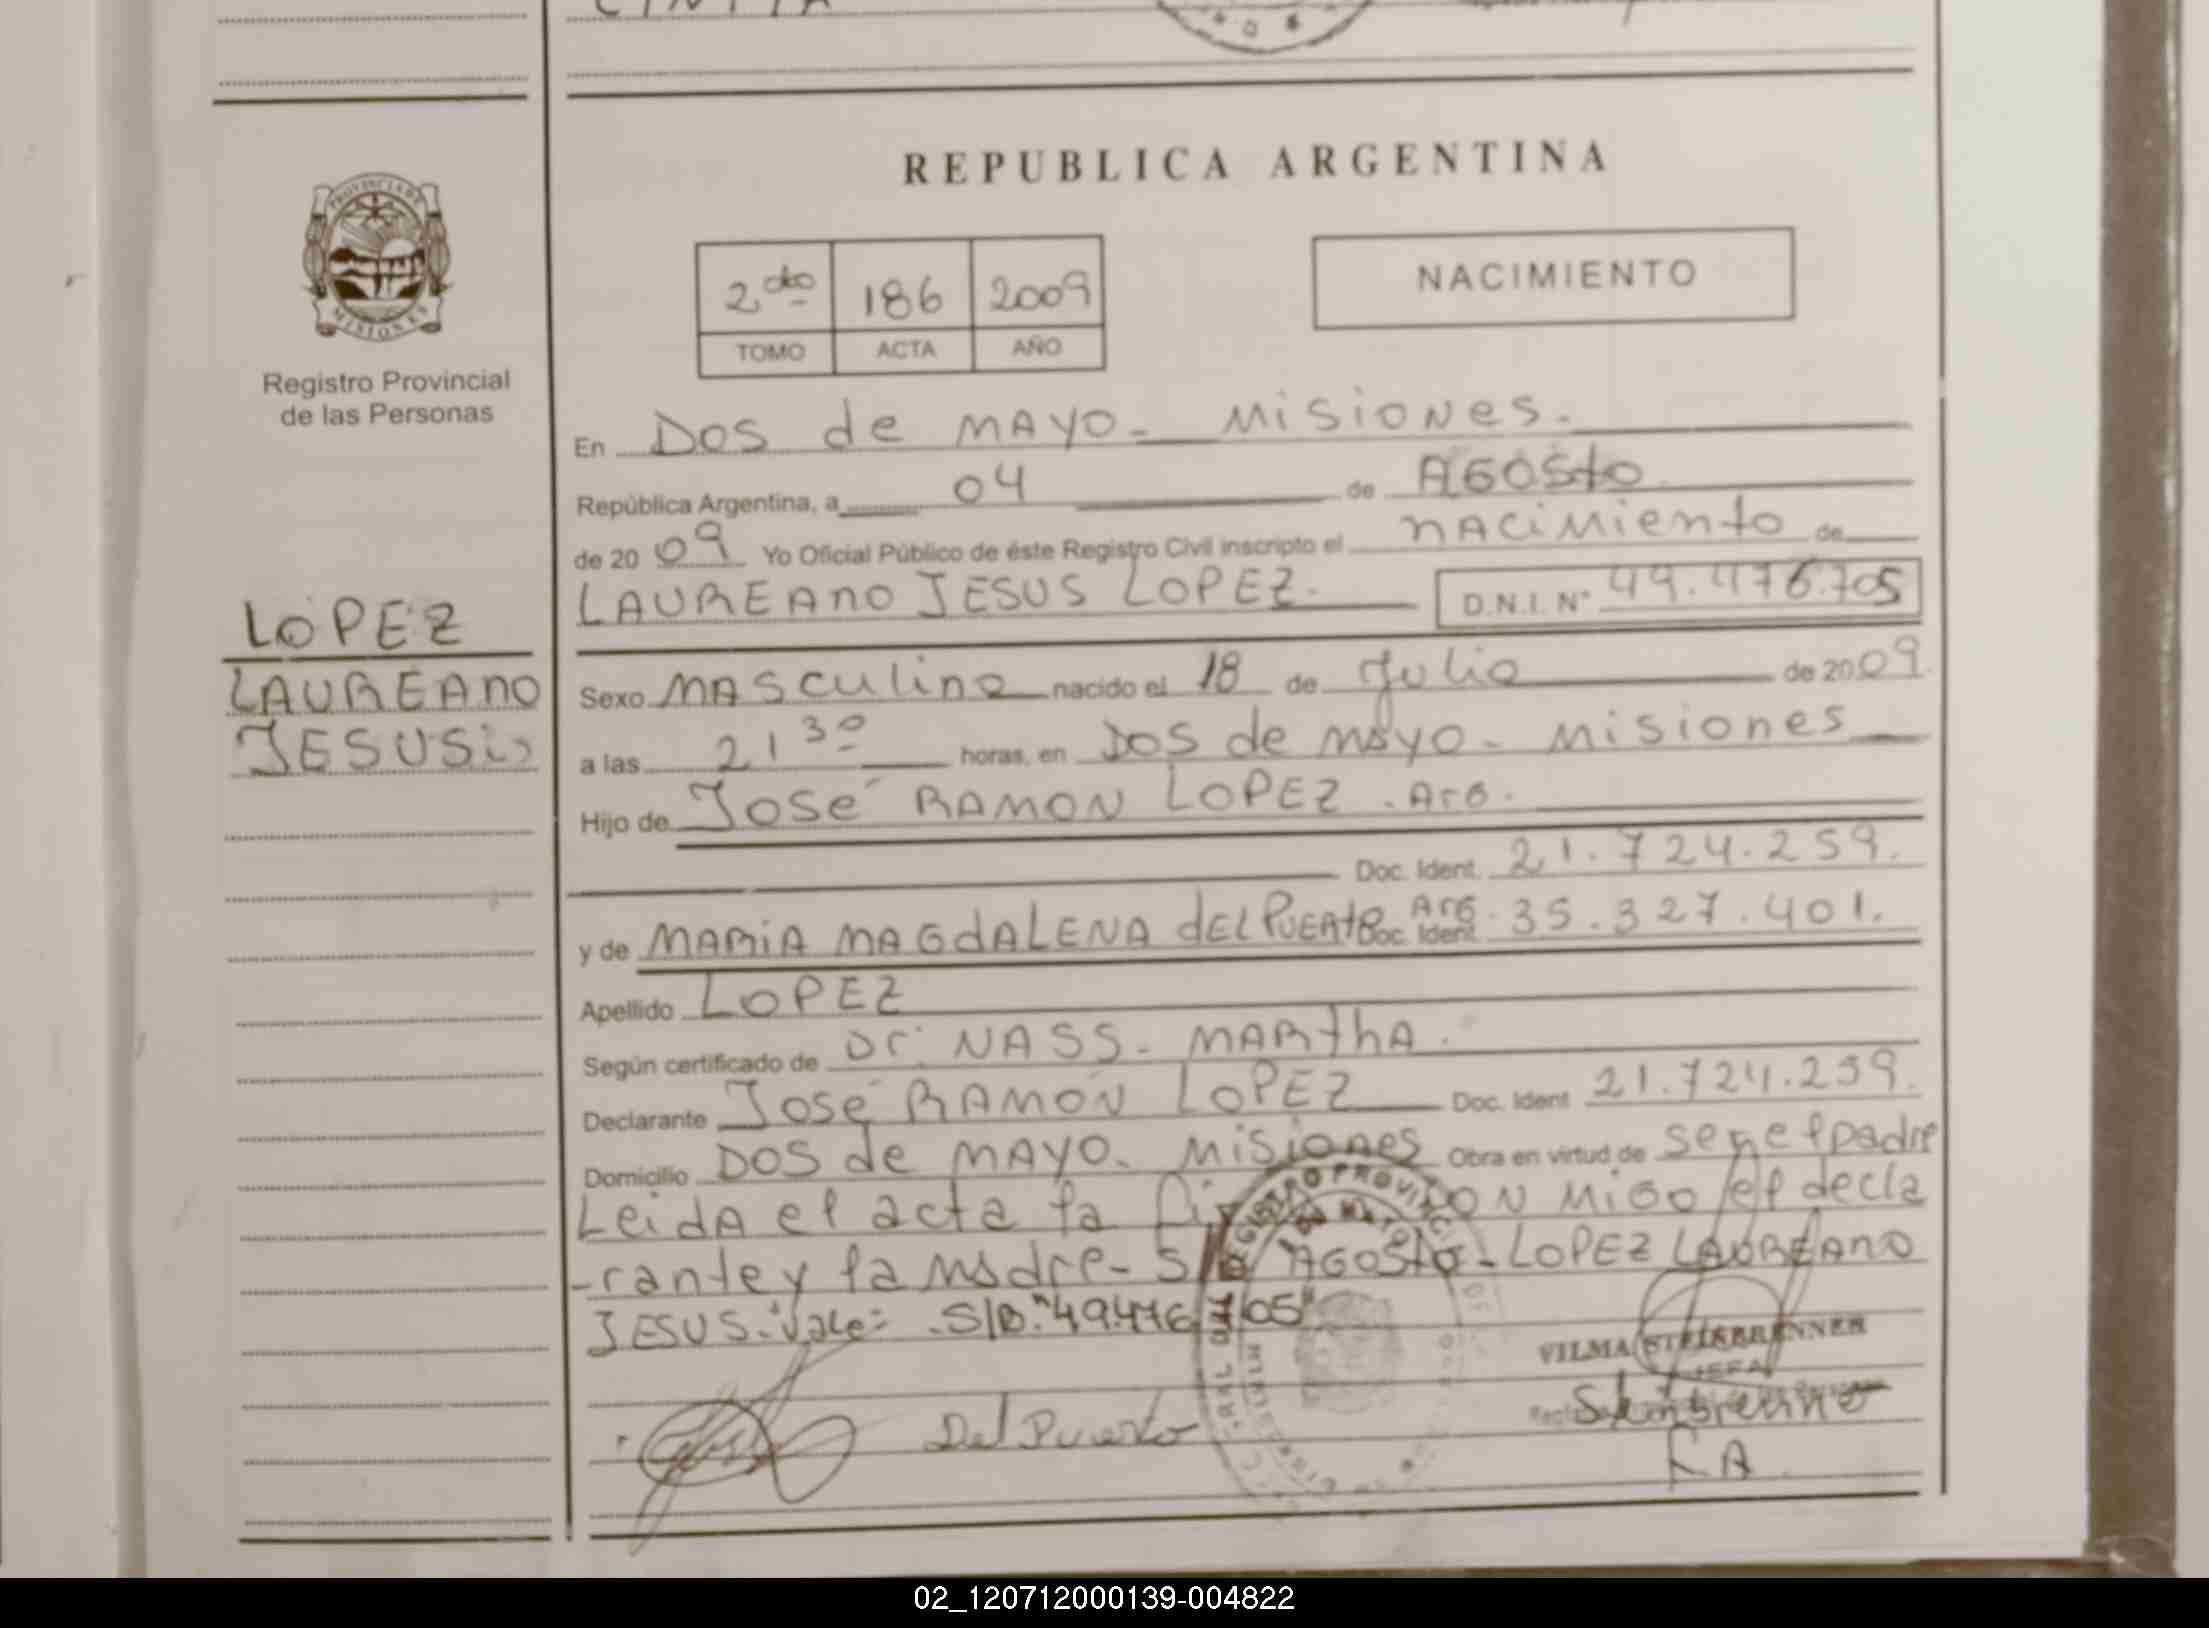 REPUBLICA ARGENTINA
PROVINCIA DE
MISIONES
Registro Provincial
de las Personas
2do 186 2009
TOMO ACTA AÑO
NACIMIENTO
En Dos de MAYO - Misiones.
República Argentina, a 04 de AGosto
de 2009 Yo Oficial Público de éste Registro Civil inscripto el nacimiento de
LAUREAno JESUS LOPEZ. D.N.I. Nº 49.476.705
LOPEZ
LAUREAno
JESUS
Sexo MAsculino nacido el 18 de Julio de 2009.
a las 21 30 horas, en Dos de mayo - Misiones
Hijo de José RAMON LOPEZ. Arg.
Doc. Ident. 21.724.259.
y de MARiA MAGdALENA dEL PUERto Arg. Doc. Ident. 35.327.401.
Apellido LOPEZ
Según certificado de Dr. NASS - MARthA.
Declarante José RAMÓN LOPEZ Doc. Ident 21.724.259.
Domicilio Dos de MAYO. Misiones Obra en virtud de ser el padre
LeidA el acta la CON MiGO el decla
-rante y la MAdre - S/B AGosto - LOPEZ LAUREAno
JESUS. Vale: S/B: "49.476.705"
VILMA STEINBRENNER
JEFA
Del Puerto
02_120712000139-004822